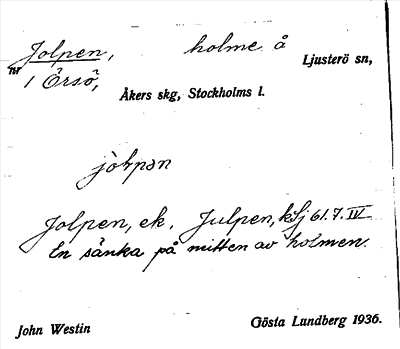 Jolpen, holme å Ljusterö sn,
nr 1 Örsö,
Åkers skg, Stockholms l.
jòlpən
Jolpen, ek. Julpen, kSj 61.7.IV
En sänka på mitten av holmen.
John Westin Gösta Lundberg 1936.